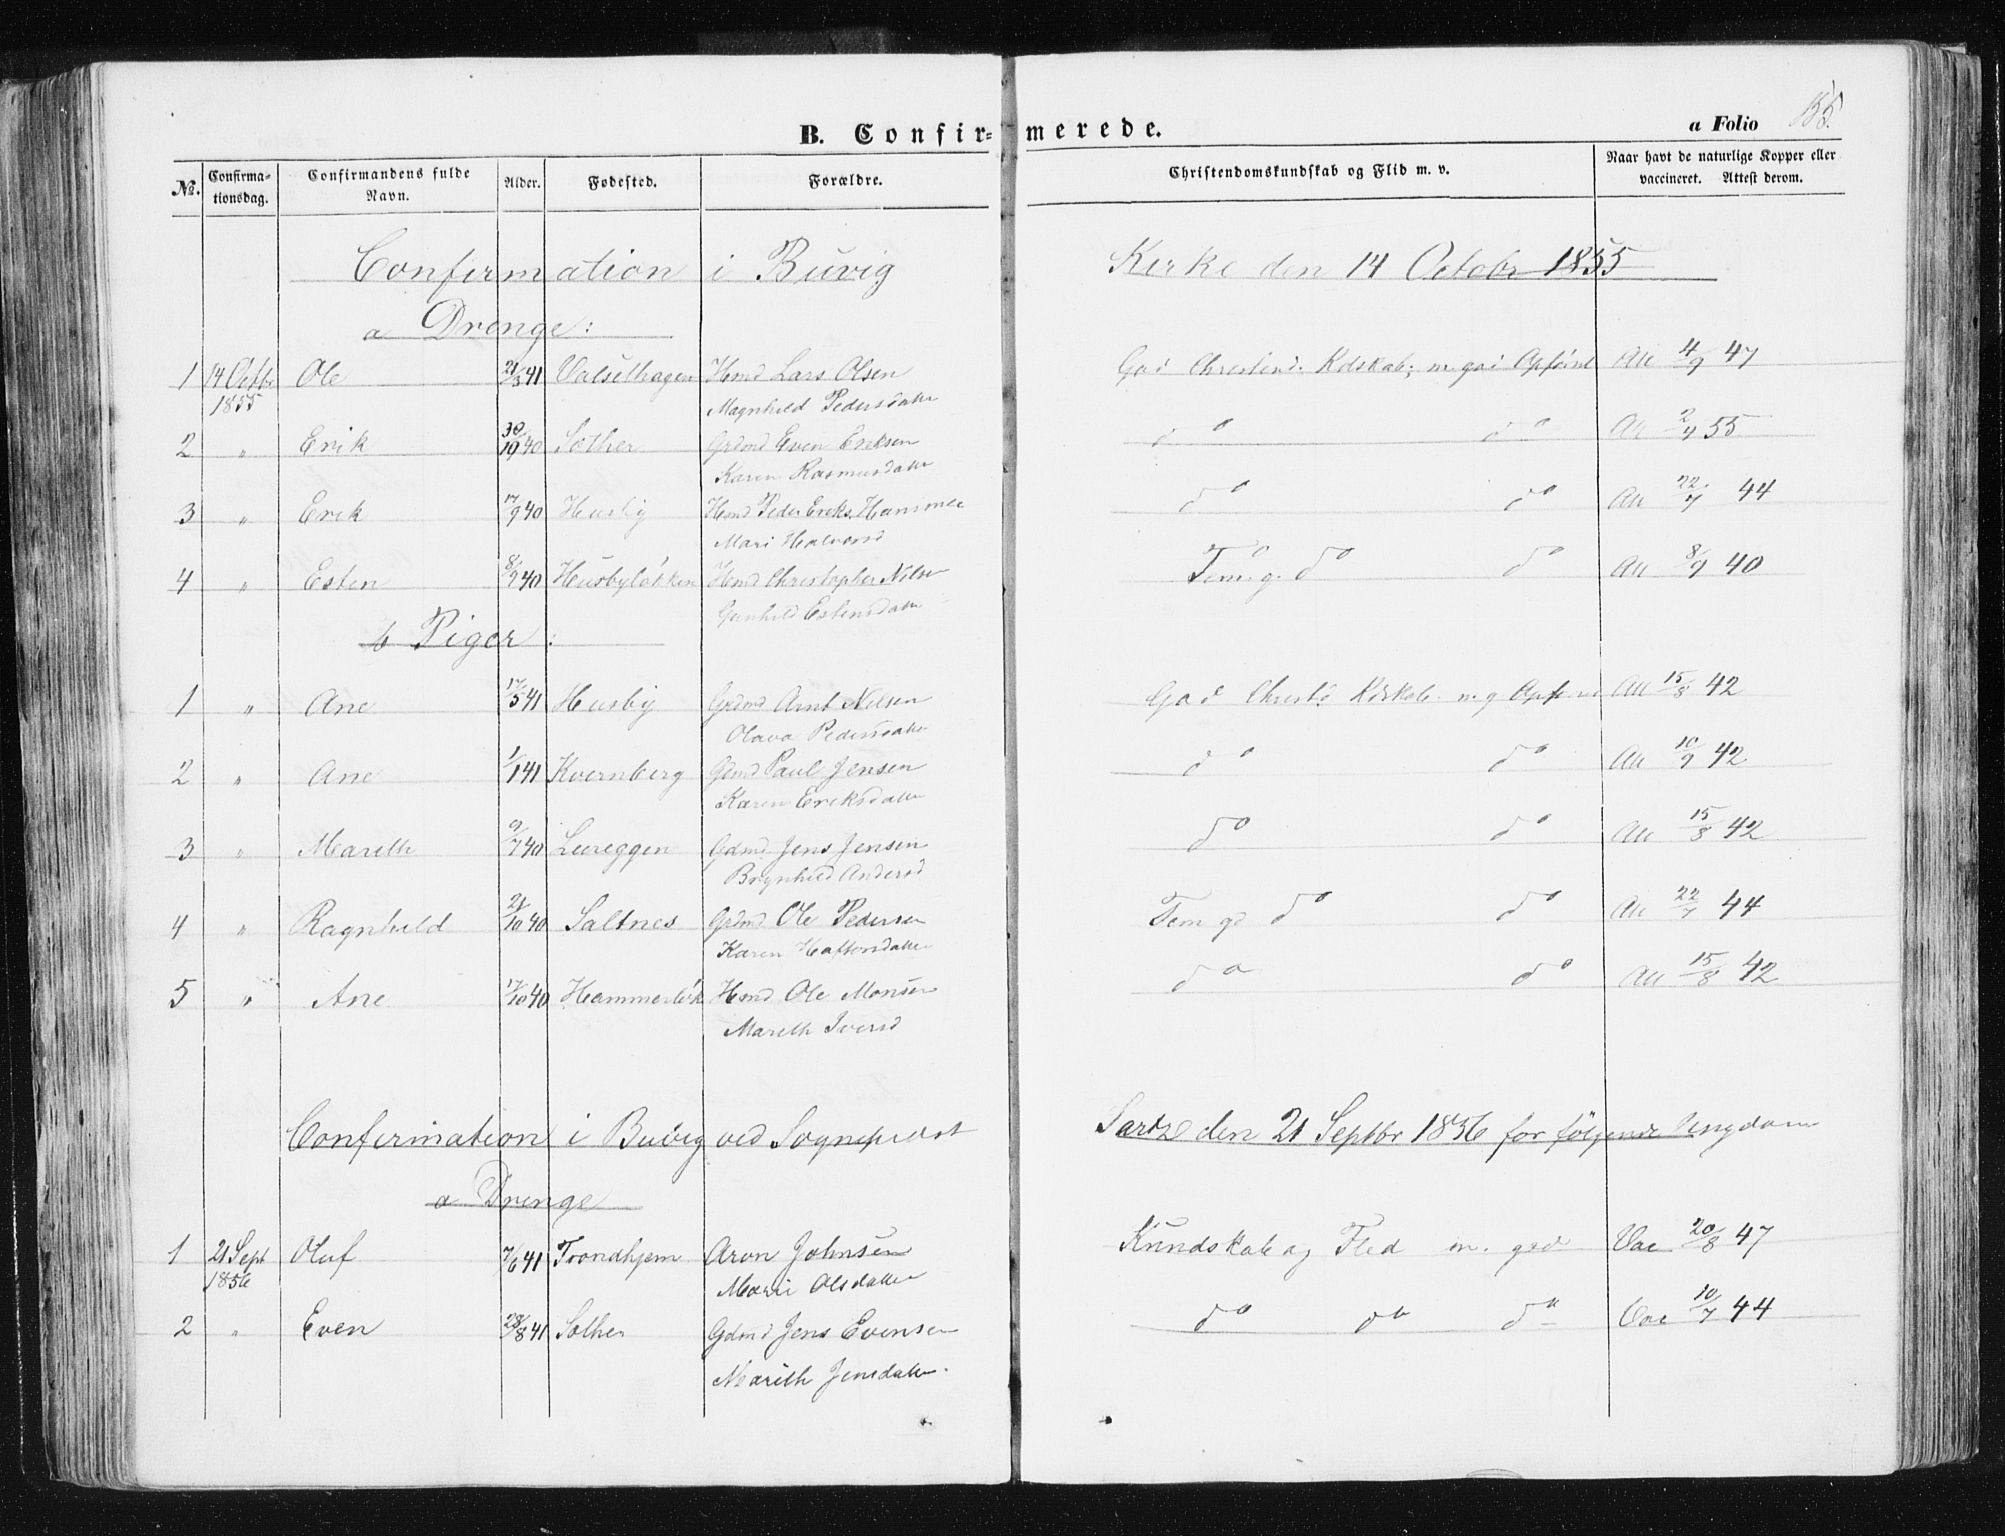 B. Confirmerede.
a Folio 155.
No. Confirmationsdag. Confirmandens fulde Navn. Alder. Fødested. Forældre. Christendomskundskab og Flid m. v. Naar havt de naturlige Kopper eller vaccineret. Attest derom.
Confirmation i Buvig Kirke den 14 Octobr 1855
a Drenge:
1 14 Octbr 1855 Ole 21/3 41 Valselhagen Hmd Lars Olsen God Christend. Kdskab; m. god Opførsel Att 4/9 47
Magnhild Pedersdatter
2 " Erik 30/10 40 Sother Grdmd Even Eriksen do do Att 2/9 55
Karen Rasmusdatter
3 " Erik 17/9 40 Husby Hmd Peder Eriks. Hammer do do Att 22/7 44
Mari Halvorsd
4 " Esten 8/7 40 Husbyløkken Hmd Christopher Nilsen Tem. g. do do Att 8/9 40
Gunhild Estensdatter
b Piger:
1 " Ane 17/5 41 Husby Grdmd Arnt Nilsen God Christd Kdskab. m. g Opførsel Att 15/8 42
Olava Pedersdatter
2 " Ane 1/1 41 Kvernberg Gdmd Paul Jensen do do Att 10/9 42
Karen Eriksdatter
3 " Mareth 9/7 40 Leereggen Gdmd Jens Jensen do do Att 15/8 42
Brynhild Andersd
4 " Ragnhild 21/10 40 Saltnes Grdmd Ole Pedersen Tem gd do do Att 22/7 44
Karen Haftorsdatter
5 " Ane 17/10 40 Hammerløk Hmd Ole Monsen do do Att 15/8 42
Mareth Iversd
Confirmation i Buvig ved Sognepræst den 21 Septbr 1856 for følgende Ungdom
a Drenge
1 21 Sept 1856 Oluf 7/6 41 Trondhjem Aron Johnsen Kundskab og Flid m. god Vac 20/8 47
Mari Olsdatter
2 " Even 28/8 41 Sother Gdmd Jens Evensen do do do Vac 10/7 44
Marith Jensdatter.